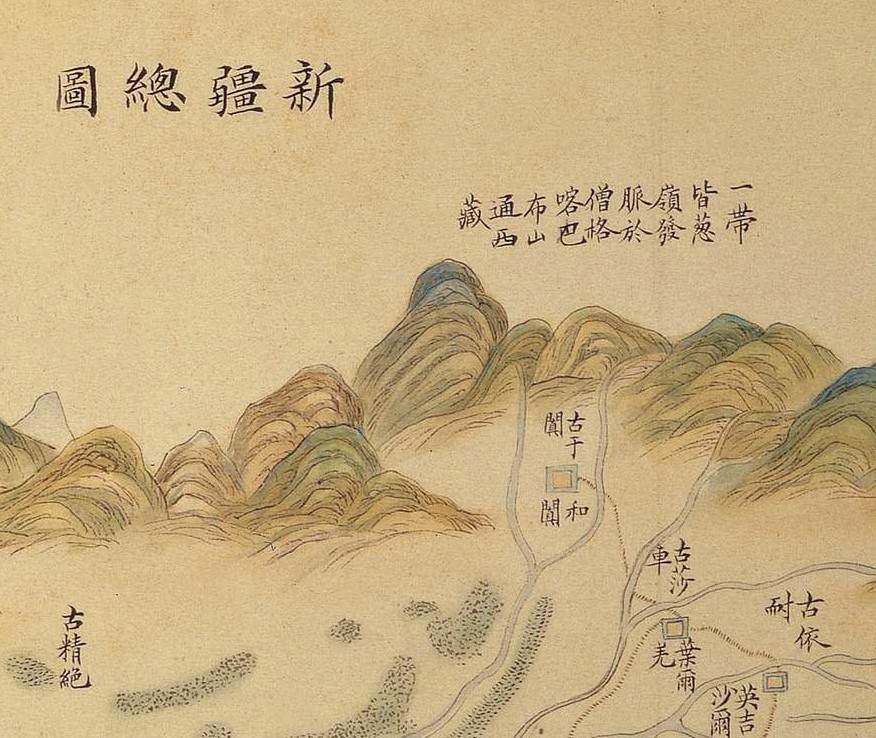 新疆總圖
一帶皆葱嶺發脈於僧格喀巴布山通西藏
古于闐
和闐
古莎車
葉爾羌
古依耐
英吉沙爾
古精絕